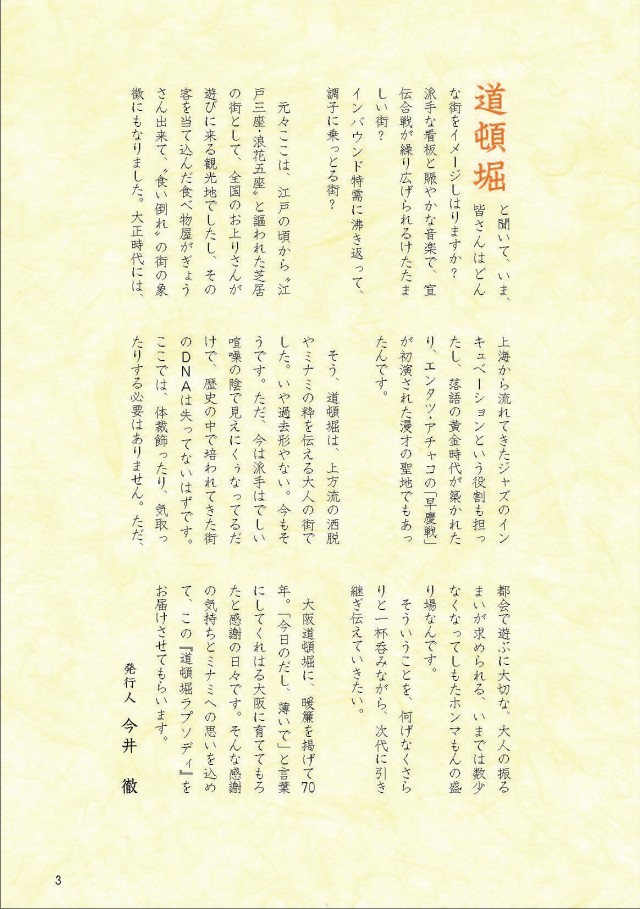 道頓堀 と聞いて、いま、
皆さんはどん
な街をイメージしはりますか?
派手な看板と賑やかな音楽で、宣
伝合戦が繰り広げられるけたたま
しい街?
インバウンド特需に沸き返って、
調子に乗っとる街?
元々ここは、江戸の頃から〝江
戸三座・浪花五座〟と謳われた芝居
の街として、全国のお上りさんが
遊びに来る観光地でしたし、その
客を当て込んだ食べ物屋がぎょう
さん出来て、〝食い倒れ〟の街の象
徴にもなりました。大正時代には、
上海から流れてきたジャズのイン
キュベーションという役割も担っ
たし、落語の黄金時代が築かれた
り、エンタツ・アチャコの「早慶戦」
が初演された漫才の聖地でもあっ
たんです。
そう、道頓堀は、上方流の洒脱
やミナミの粋を伝える大人の街で
した。いや過去形やない。今もそ
うです。ただ、今は派手はでしい
喧噪の陰で見えにくぅなってるだ
けで、歴史の中で培われてきた街
のDNAは失ってないはずです。
ここでは、体裁飾ったり、気取っ
たりする必要はありません。ただ、
都会で遊ぶに大切な、大人の振る
まいが求められる、いまでは数少
なくなってしもたホンマもんの盛
り場なんです。
そういうことを、何げなくさら
りと一杯呑みながら、次代に引き
継ぎ伝えていきたい。
大阪道頓堀に、暖簾を掲げて70
年。「今日のだし、薄いで」と言葉
にしてくれはる大阪に育ててもろ
たと感謝の日々です。そんな感謝
の気持ちとミナミへの思いを込め
て、この『道頓堀ラプソディ』を
お届けさせてもらいます。
発行人 今井 徹
3